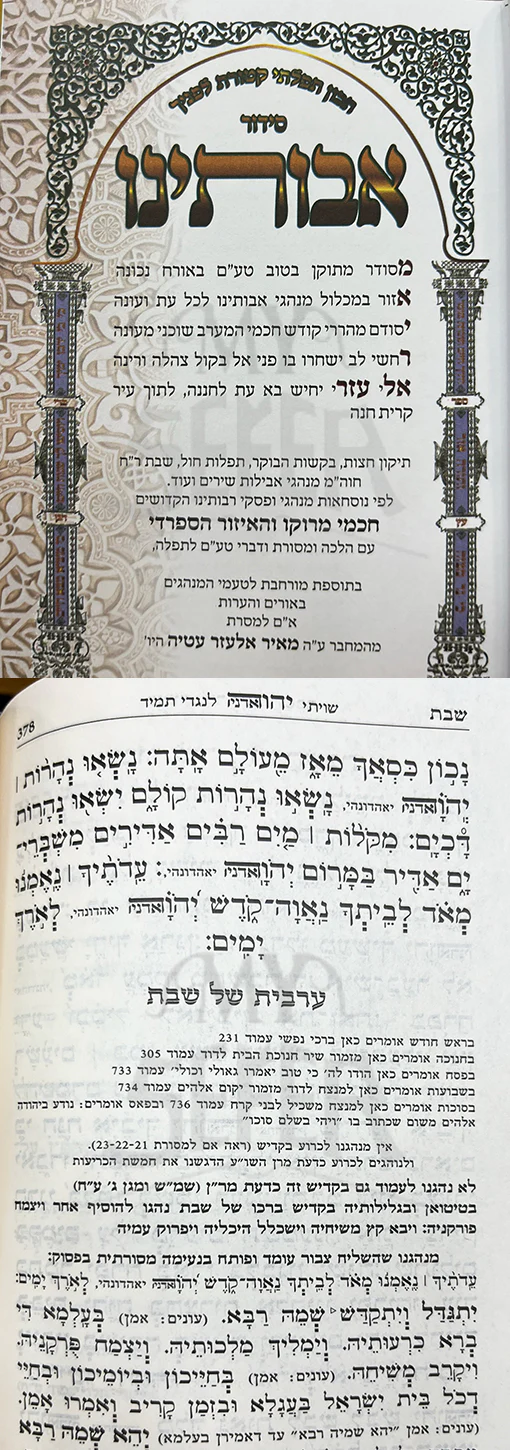 תכון תפלתי קטורת לפניך
סידור
אבותינו
מסודר מתוקן בטוב טע״ם באורח נכונה
אזור במכלול מנהגי אבותינו לכל עת ועונה
יסודם מהררי קודש חכמי המערב שוכני מעונה
רחשי לב ישחרו בו פני אל בקול צהלה ורינה
אלי עזרי יחיש בא עת לחננה, לתוך עיר
קרית חנה
תיקון חצות, בקשות הבוקר, תפלות חול, שבת ר״ח
חוה״מ מנהגי אבילות שירים ועוד.
לפי נוסחאות מנהגי ופסקי רבותינו הקדושים
חכמי מרוקו והאיזור הספרדי
עם הלכה ומסורת ודברי טע״ם לתפלה,
בתוספת מורחבת לטעמי המנהגים
באורים והערות
א״ם למסרת
מהמחבר ע״ה מאיר אלעזר עטיה היו׳
ספר
עץ
שבת שויתי יְהוָֹאדניהּ לנגדי תמיד 378
נָכ֣וֹן כִּסְאֲךָ֣ מֵאָ֑ז מֵֽעוֹלָ֣ם אָֽתָּה׃ נָשְׂא֤וּ נְהָר֨וֹת ׀
יְֽהוָֹאדניה יאהדונהי, נָשְׂא֣וּ נְהָר֣וֹת קוֹלָ֑ם יִשְׂא֖וּ נְהָר֣וֹת
דָּכְיָֽם׃ מִקֹּל֨וֹת ׀ מַ֤יִם רַבִּ֗ים אַדִּירִ֣ים מִשְׁבְּרֵי־
יָ֑ם אַדִּ֖יר בַּמָּר֣וֹם יְהוָֹאדניה יאהדונהי,׃ עֵֽדֹתֶ֨יךָ ׀ נֶאֶמְנ֬וּ
מְאֹ֗ד לְבֵיתְךָ֥ נַאֲוָה־קֹ֑דֶשׁ יְ֝הוָֹאדניה יאהדונהי, לְאֹ֣רֶךְ
יָמִֽים׃
ערבית של שבת
בראש חודש אומרים כאן ברכי נפשי עמוד 231
בחנוכה אומרים כאן מזמור שיר חנוכת הבית לדוד עמוד 305
בפסח אומרים כאן הודו לה׳ כי טוב יאמרו גאולי וכולי׳ עמוד 733
בשבועות אומרים כאן למנצח לדוד מזמור יקום אלהים עמוד 734
בסוכות אומרים כאן למנצח משכיל לבני קרח עמוד 736 ובפאס אומרים: נודע ביהודה
אלהים משום שכתוב בו ״ויהי בשלם סוכו״
אין מנהגנו לכרוע בקדיש (ראה אם למסורת 23-22-21).
ולנוהגים לכרוע כדעת מרן השו״ע הדגשנו את חמשת הכריעות
לא נהגנו לעמוד גם בקדיש זה כדעת מר״ן (שמ״ש ומגן ג׳ ע״ח)
בטיטואן ובגלילותיה בקדיש ברכו של שבת נהגו להוסיף אחר ויצמח
פורקניה: ויבא קץ משיחיה וישכלל היכליה ויפרוק עמיה
מנהגנו שהשליח צבור עומד ופותח בנעימה מסורתית בפסוק:
עֵֽדֹתֶ֨יךָ ׀ נֶאֶמְנ֬וּ מְאֹ֗ד לְבֵיתְךָ֥ נַאֲוָה־קֹ֑דֶשׁ יְ֝הוָֹאדניה יאהדונהי, לְאֹ֣רֶךְ יָמִֽים׃
יִתְגַּדַּל וְיִתְקַדַּשׁ שְׁמֵהּ רַבָּא. (עונים: אמן) בְּעָלְמָא דִּי
בְרָא כִרְעוּתֵיהּ. וְיַמְלִיךְ מַלְכוּתֵיהּ. וְיַצְמַח פֻּרְקָנֵיהּ.
וִיקָרֵב מְשִׁיחֵהּ. (עונים: אמן) בְּחַיֵּיכוֹן וּבְיוֹמֵיכוֹן וּבְחַיֵּי
דְכֹל בֵּית יִשְׂרָאֵל בַּעֲגָלָא וּבִזְמַן קָרִיב וְאִמְרוּ אָמֵן.
(עונים: אמן ״יהא שמיה רבא״ עד דאמירן בעלמא) יְהֵא שְׁמֵהּ רַבָּא